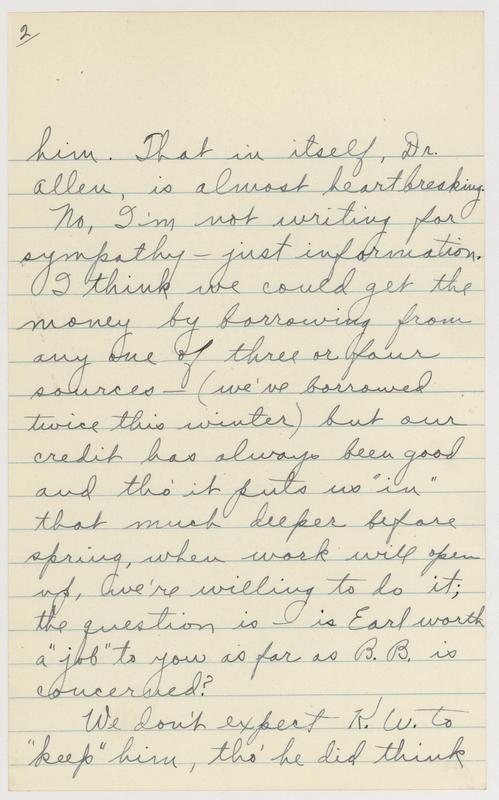 2
him. That in itself, Dr.
Allen, is almost heartbreaking.
No, I'm not writing for
sympathy - just information.
I think we could get the
money by borrowing from
any one of three or four
sources - (we've borrowed
twice this winter) but our
credit has always been good
and tho' it puts us "in"
that much deeper before
spring, when work will open
up, we're willing to do it;
the question is - is Earl worth
a "job" to you as far as B.B. is
concerned?
We don't expect K.W. to
"keep" him, tho' he did think